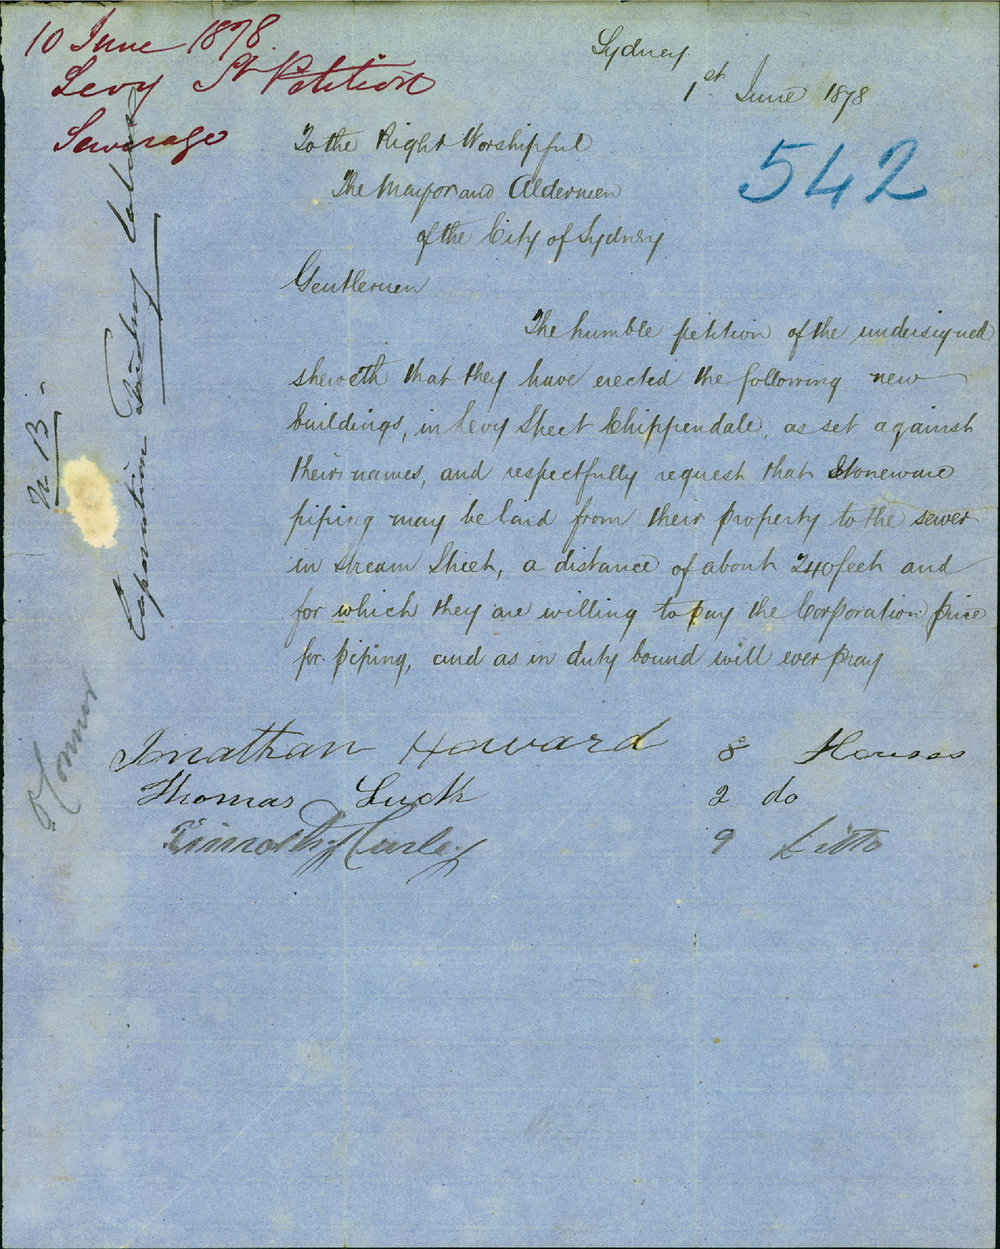 10 June 1878
Levy St. Petition
Sewerage
Sydney
1st June 1878
542
To the Right Worshipful
The Mayor and Aldermen
of the City of Sydney
Gentlemen
The humble petition of the undersigned
sheweth that they have erected the following new
buildings, in Levy Street Chippendale, as set against
their names, and respectfully request that Stoneware
piping may be laid from their property to the sewer
in Stream Street, a distance of about 240 feet and
for which they are willing to pay the Corporation price
for piping, and as in duty bound will ever pray
Jonathan Howard 8 Houses
Thomas Luck 2 do
Timothy Curley 9 Ditto
N B -
O'Connor